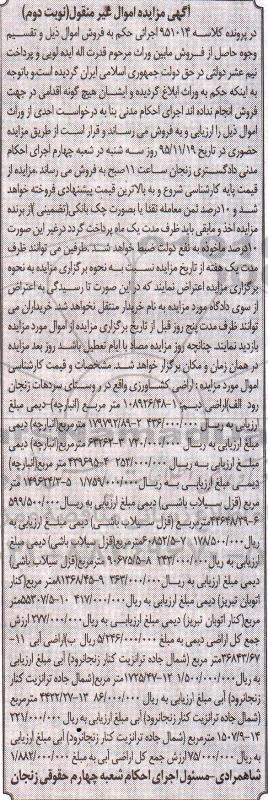 آگهی مزایده اموال غیر منقول(نوبت دوم)
در پرونده کلاسه ۹۵۱۰۱۴ اجرائی حکم به فروش اموال ذیل و تقسیم
وجوه حاصل از فروش مابین وراث مرحوم قدرت اله ایده لویی و پرداخت
نیم عشر دولتی در حق دولت جمهوری اسلامی ایران گردیده است وباتوجه
به اینکه حکم به وراث ابلاغ گردیده و ایشان هیچ گونه اقدامی در جهت
فروش انجام نداده اند اجرای احکام مدنی بنا به درخواست احدی از وراث
اموال ذیل را ارزیابی و به فروش می رساند و قرار است از طریق مزایده
حضوری در تاریخ ۹۵/۱۱/۱۹ روز سه شنبه در شعبه چهارم اجرای احکام
مدنی دادگستری زنجان ساعت ۱۱صبح به فروش می رساند .مزایده از
قیمت پایه کارشناسی شروع و به بالاترین قیمت پیشنهادی فروخته خواهد
شد و ۱۰درصد ثمن معامله نقدا یا بصورت چک بانکی(تضمینی )از برنده
مزایده اخذ و مابقی باید ظرف مدت یک ماه پرداخت گردد درغیر این صورت
۱۰درصد ماخوذه به نفع دولت ضبط خواهد شد .طرفین می توانند ظرف
مدت یک هفته از تاریخ مزایده نسبت به نحوه برگزاری مزایده به نحوه
برگزاری مزایده اعتراض نمایند که در این صورت تا رسیدگی به اعتراض
از سوی دادگاه مورد مزایده به نام خریدار منتقل نخواهد شد خریداران می
توانند ظرف مدت پنج روز قبل از تاریخ برگزاری مزایده از اموال مورد مزایده
بازدید نمایند. چنانچه روز مزایده مصادف با ایام تعطیل باشد روز بعد مزایده
در همان زمان و مکان برگزار خواهد شد. مشخصات و قیمت کارشناسی
اموال مورد مزایده : اراضی کشاورزی واقع در روستای سردهات زنجان
رود الف)اراضی دیم: ۱-۱۰۸۹۲۶/۴۸ متر مربع (انبارچه)-دیمی مبلغ
ارزیابی به ریال ۴۳۶/۰۰۰/۰۰۰ ۲-۱۷۹۷۹۲/۸۹ مترمربع(انبارچه) دیمی
مبلغ ارزیابی به ریال ۷۲۰/۰۰۰/۰۰۰ ۳-۶۳۲۶۲ متر مربع(انبارچه) دیمی
مبلغ ارزیابی به ریال ۲۵۳/۰۰۰/۰۰۰ ۴-۴۳۹۶۹۵ متر مربع(انبارچه)
دیمی مبلغ ارزیابی به ریال ۱/۷۵۹/۰۰۰/۰۰۰ ۵-۱۴۹۶۲۴/۳ متر
مربع (قزل سیلاب باشی) دیمی مبلغ ارزیابی به ریال ۵۹۹/۵۰۰/۰۰۰
۶-۴۴۶۴۸/۳۹ مترمربع (قزل سیلاب باشی) دیمی مبلغ ارزیابی به
ریال ۱۷۸/۵۰۰/۰۰۰ ۷-۶۰۸۵۲/۵ مترمربع(قزل سیلاب باشی) دیمی مبلغ
ارزیابی به ریال ۲۴۳/۰۰۰/۰۰۰ ۸-۹۰۶۷۵/۵ مترمربع(قزل سیلاب باشی)
دیمی مبلغ ارزیابی به ریال ۳۶۳/۰۰۰/۰۰۰ ۹-۸۱۳۶۸/۴۵ مترمربع (کنار
اتوبان تبریز) دیمی مبلغ ارزیابی به ریال ۴۱۷/۰۰۰/۰۰۰ ۱۰-۵۵۳۰۷/۵متر
مربع(کنار اتوبان تبریز) دیمی مبلغ ارزیابی به ریال ۲۷۷/۰۰۰/۰۰۰ ارزش
جمع کل اراضی دیمی به مبلغ ۵/۲۴۶/۰۰۰/۰۰۰ ریال ب)اراضی آبی ۱۱-
۳۶۸۴۳/۶۷متر مربع (شمال جاده ترانزیت کنار زنجانرود) آبی مبلغ ارزیابی
به ریال ۱/۵۰۰/۰۰۰/۰۰۰ ۱۲-۱۷۲۵/۴۷متر مربع(شمال جاده ترانزیت کنار
زنجانرود) آبی مبلغ ارزیابی به ریال ۸۶/۰۰۰/۰۰۰ ۱۳-۴۴۲۲/۲۷ مترمربع
(شمال جاده ترانزیت کنار زنجانرود) آبی مبلغ ارزیابی به ریال ۲۲۱/۰۰۰/۰۰۰
۱۴-۱۵۰۷/۹ مترمربع (شمال جاده ترانزیت کنار زنجانرود) آبی مبلغ ارزیابی
به ریال ۷۵/۰۰۰/۰۰۰ ارزش جمع کل اراضی آبی به مبلغ ۱/۸۸۲/۰۰۰/۰۰۰
شاهمرادی -مسئول اجرای احکام شعبه چهارم حقوقی زنجان